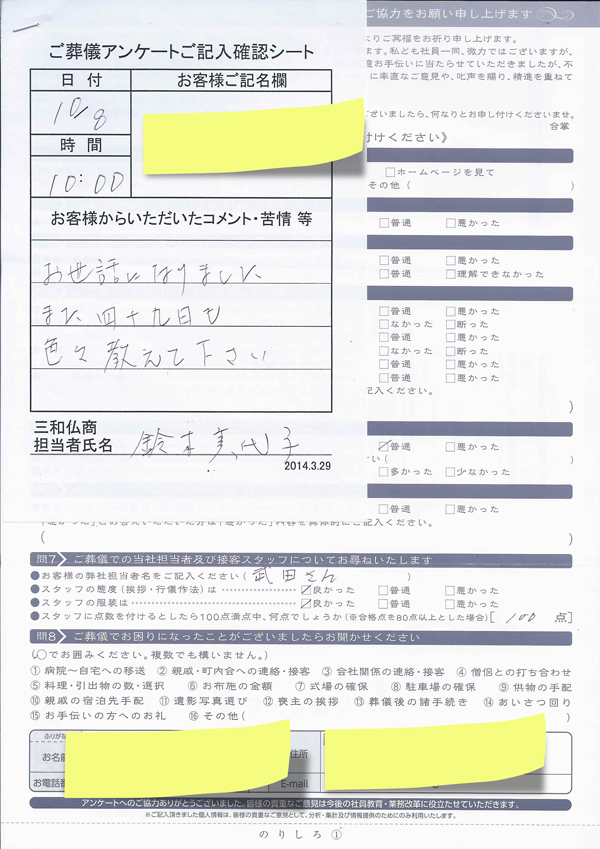 ご協力をお願い申し上げます
ご葬儀アンケートご記入確認シート
日付
お客様ご記名欄
10/8
時間
10:00
お客様からいただいたコメント・苦情 等
お世話になりました
また四十九日も
色々教えて下さい
三和仏商
担当者氏名 鈴木美代子
2014.3.29
よりご冥福をお祈り申し上げます。
ます。私ども社員一同、微力ではございますが、
お手伝いに当たらせていただきましたが、不
に率直なご意見や、叱声を賜り、精進を重ねて
ございましたら、何なりとお申し付けくださいませ。
合掌
付けください》
□ホームページを見て
その他( )
□普通 □悪かった
□普通 □悪かった
□普通 □理解できなかった
□普通 □悪かった
□なかった □断った
□普通 □悪かった
□なかった □断った
□普通 □悪かった
□普通 □悪かった
記入ください。
)
☑普通 □悪かった
い(
□多かった □少なかった
□普通 □悪かった
「悪かった」とお答えいただいた方は「悪かった」内容を具体的にご記入ください。
( )
問7 ご葬儀での当社担当者及び接客スタッフについてお尋ねいたします
●お客様の弊社担当者名をご記入ください( 武田さん )
●スタッフの態度(挨拶・行儀作法)は ☑良かった □普通 □悪かった
●スタッフの服装は ☑良かった □普通 □悪かった
●スタッフに点数を付けるとしたら100点満点中、何点でしょうか(※合格点を80点以上とした場合)[ 100 点]
問8 ご葬儀でお困りになったことがございましたらお聞かせください
(○でお囲みください。複数でも構いません。)
①病院~自宅への移送 ②親戚・町内会への連絡・接客 ③会社関係の連絡・接客 ④僧侶との打ち合わせ
⑤料理・引出物の数・選択 ⑥お布施の金額 ⑦式場の確保 ⑧駐車場の確保 ⑨供物の手配
⑩親戚の宿泊先手配 ⑪遺影写真選び ⑫喪主の挨拶 ⑬葬儀後の諸手続き ⑭あいさつ回り
⑮お手伝いの方へのお礼 ⑯その他( )
ふりがな
お名前
住所
お電話番
E-mail
アンケートへのご協力ありがとうございました。皆様の貴重なご意見は今後の社員教育・業務改革に役立たせていただきます。
※ご記入頂きました個人情報は、皆様の貴重なご意見として、分析・集計及び情報提供のためにのみ利用いたします。
のりしろ①